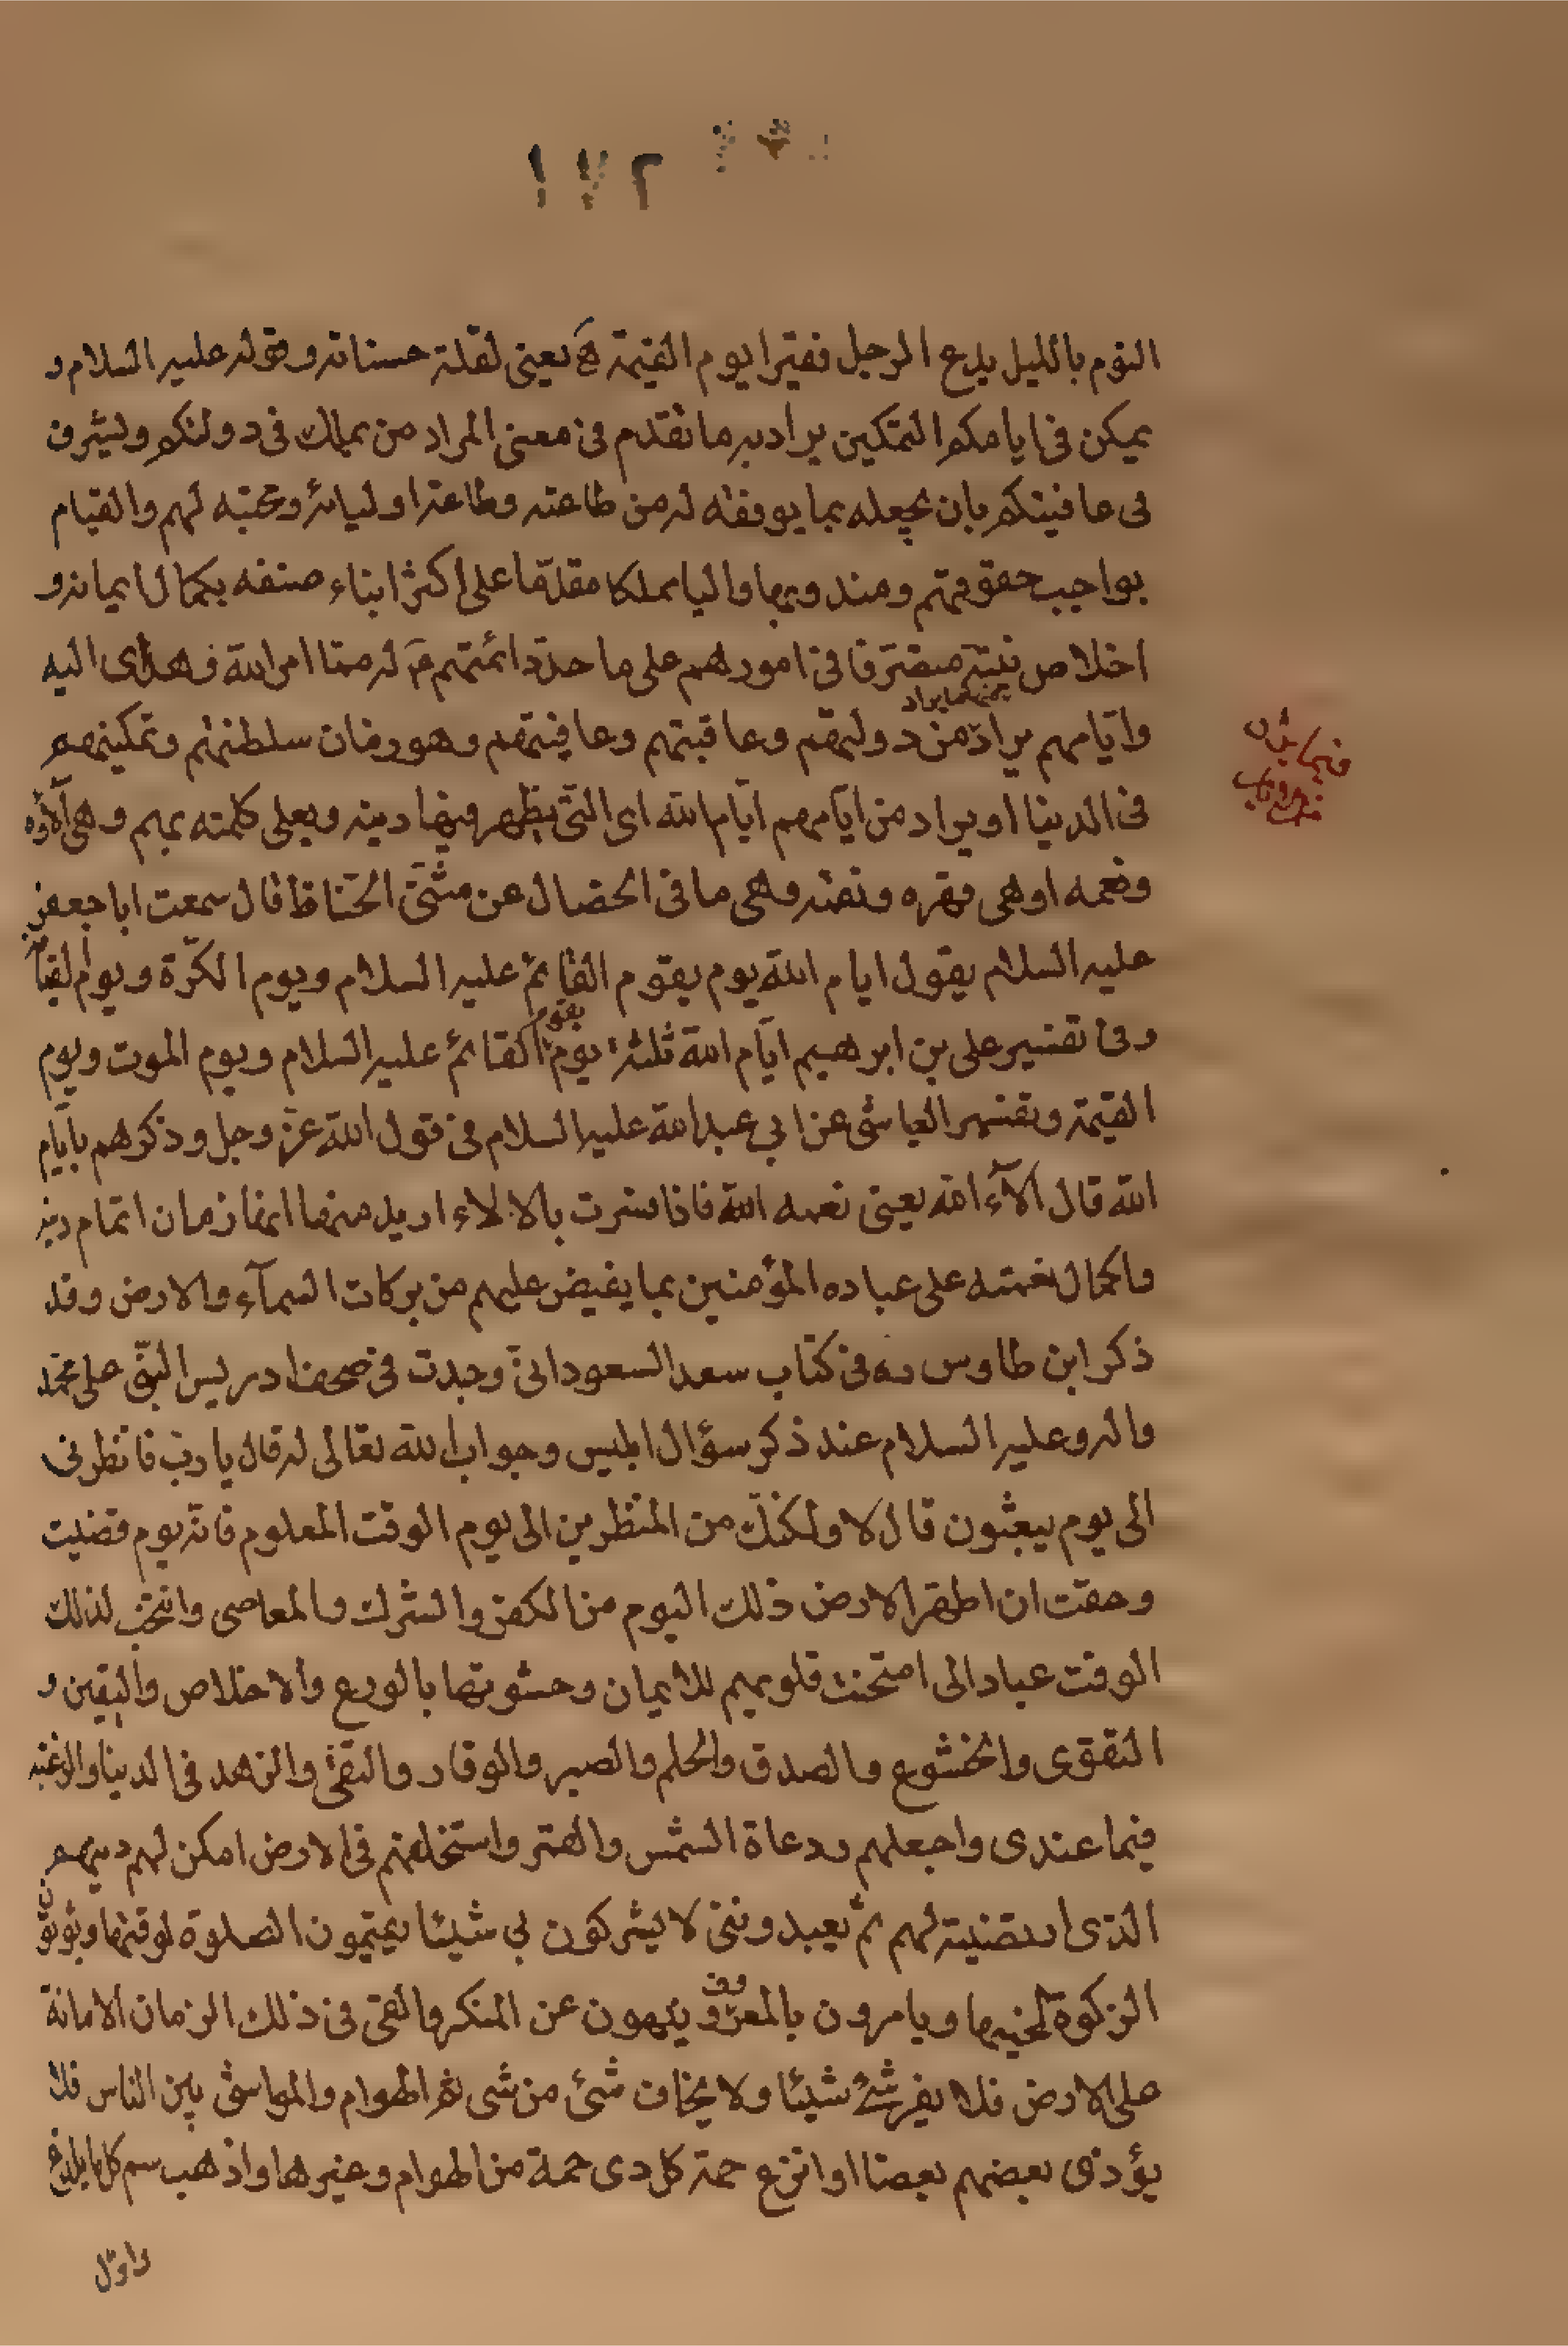 ١٧٢
النوم بالليل يدع الرجل فقيرا يوم القيمة يعنى لقلة حسناته وقوله عليه السلام و
يمكن فى ايامكم التمكين يراد به ما تقدم فى معنى المراد من يملك فى دولتكم ويشرف
فى عافيتكم بان يجعله بما يوفقه له من طاعته وطاعة اوليائه ومحبته لهم والقيام
بواجب حقوقهم ومندوبها واليا مملكا مقدّما على اكثر ابناء صنفه بكمال ايمانه و
اخلاص نيته متصرفا فى امورهم على ما حدّد ائمتهم له مما امر الله فهدى اليه
وايّامهم يراد من دولتهم وعاقبتهم وعافيتهم وهو زمان سلطنتهم وتمكينهم
فى الدنيا او يراد من ايّامهم ايّام الله اى التى يظهر فيها دينه ويعلى كلمته بهم وهى آلاؤه
ونعمه او هى قهره ونقمته وهى ما فى الخصال عن مثنّى الحنّاط قال سمعت ابا جعفر
عليه السلام يقول ايام الله يوم يقوم القائم عليه السلام ويوم الكرّة ويوم القيمة
وفى تفسير على بن ابرهيم ايّام الله ثلثة يوم يقوم القائم عليه السلام ويوم الموت ويوم
القيمة وتفسير العياشى عن ابي عبدالله عليه السلام فى قول الله عزّ وجل وذكرهم بايّام
الله قال آلآء الله يعنى نعمه الله فاذا فسرت بالالاء اريد منها انها زمان اتمام دينه
واكمال نعمته على عباده المؤمنين بما يفيض عليهم من بركات السمآء والارض وقد
ذكر ابن طاوس ره فى كتاب سعد السعود انى وجدت فى صحف ادريس النبى على محمد
واله وعليه السلام عند ذكر سؤال ابليس وجواب الله تعالى له قال يا ربّ فانظرنى
الى يوم يبعثون قال لا ولكنّك من المنظرين الى يوم الوقت المعلوم فانّه يوم قضيت
وحتمت ان اطهر الارض ذلك اليوم من الكفر والشرك والمعاصى وانتخب لذلك
الوقت عبادا لى امتحنت قلوبهم للايمان وحشوتها بالورع والاخلاص واليقين و
التقوى والخشوع والصدق والحلم والصبر والوقار والتقى والزهد فى الدنيا والرغبة
فيما عندى واجعلهم دعاة الشمس والقمر واستخلفهم فى الارض امكن لهم دينهم
الذى ارتضيته لهم ثم يعبدوننى لا يشركون بي شيئا يقيمون الصلوة لوقتها ويؤتون
الزكوة لحينها ويامرون بالمعروف وينهون عن المنكر والقى فى ذلك الزمان الامانة
على الارض فلا يضر شئ شيئا ولا يخاف شئ من شى ثم الهوام والمواشى بين الناس فلا
يؤذى بعضهم بعضا وانزع حمة كل ذى حمة من الهوام وغيرها واذهب سم كل ما يلدغ
وانزل